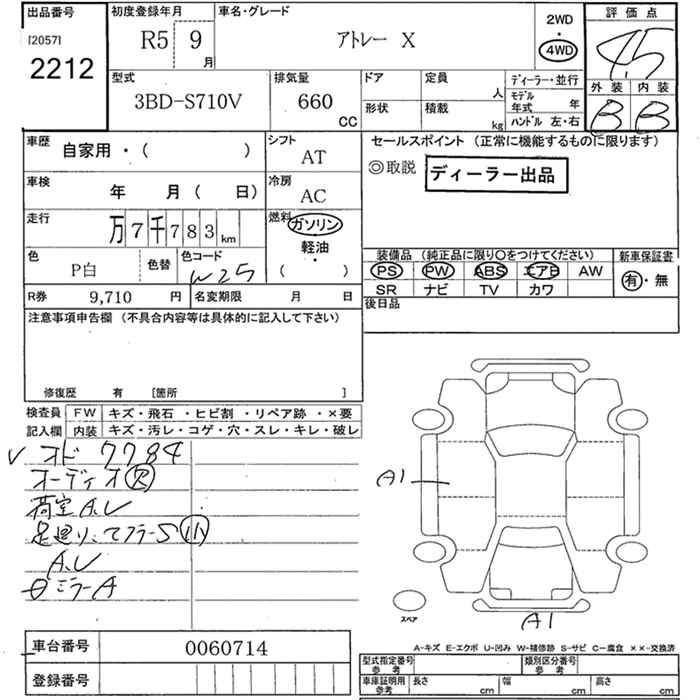 出品番号
[2057]
2212
初度登録年月
R5 9 月
車名・グレード
アトレー X
2WD
・
4WD
評価点
4.5
外装 内装
B B
型式
3BD-S710V
排気量
660 CC
ドア
形状
定員 人
積載 kg
ディーラー・並行
モデル年式 年
ハンドル 左・右
車歴 自家用・( )
シフト AT
車検 年 月( 日)
冷房 AC
走行 万7千783km
燃料 ガソリン
・
軽油
・
( )
色 P白 色替
色コード W25
R券 9,710 円 名変期限 月 日
注意事項申告欄 (不具合内容等は具体的に記入して下さい)
修復歴 有 [箇所 ]
セールスポイント (正常に機能するものに限ります)
◎取説 ディーラー出品
装備品 (純正品に限り〇をつけてください) 新車保証書
PS PW ABS エアB AW 有・無
SR ナビ TV カワ
後日品
検査員記入欄
FW キズ・飛石・ヒビ割・リペア跡・×要
内装 キズ・汚レ・コゲ・穴・スレ・キレ・破レ
✓ オド 7784
オーディオ欠
荷室A,U
足廻り、マフラーS小
A,U
ミラーA
A1
スペア
A1
A-キズ E-エクボ U-凹み W-補修跡 S-サビ C-腐食 ××-交換済
車台番号 0060714
登録番号
型式指定番号参考 類別区分番号参考
車庫証明用参考 長さ cm 幅 cm 高さ cm